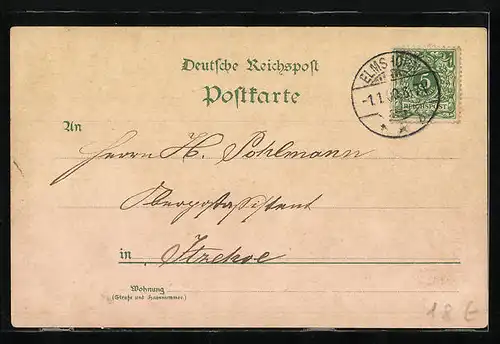 Deutsche Reichspost
Postkarte
ELMSHORN
-1.1.00
5
REICHSPOST
An
Herrn H. Pohlmann
Oberpostassistent
in Itzehoe
Wohnung
(Straße und Hausnummer)
18 €